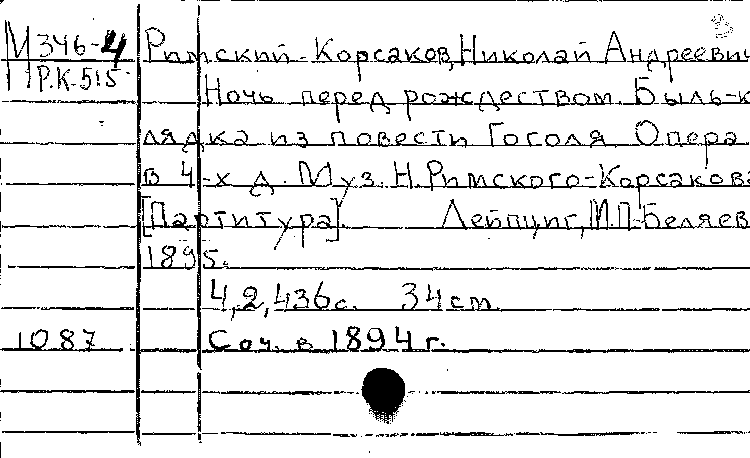 М 346-4 Римский-Корсаков, Николай Андреевич
Р.К-515 Ночь перед рождеством. Быль-ко
лядка из повести Гоголя Опера
в 4-х д. Муз. Н. Римского-Корсакова
[Партитура]. Лейпциг, М.П. Беляев
1895.
4,2,436с. 34 см.
1087 Соч. в 1894 г.